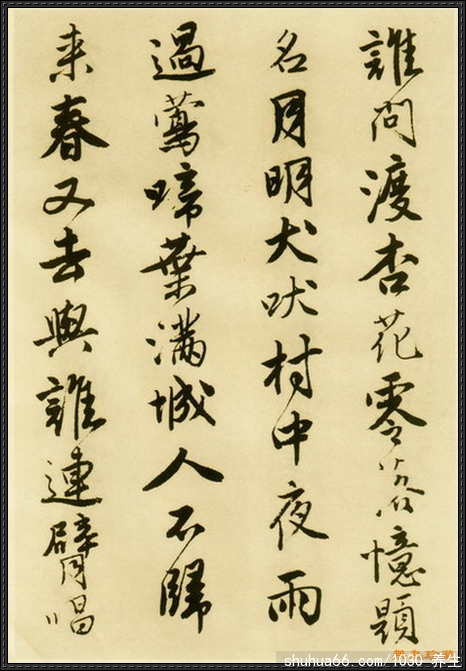 誰問渡杏花零落憶題
名月明犬吠村中夜雨
過鶯啼葉滿城人不歸
来春又去與誰連臂唱
shuhua66.com/1030-养生